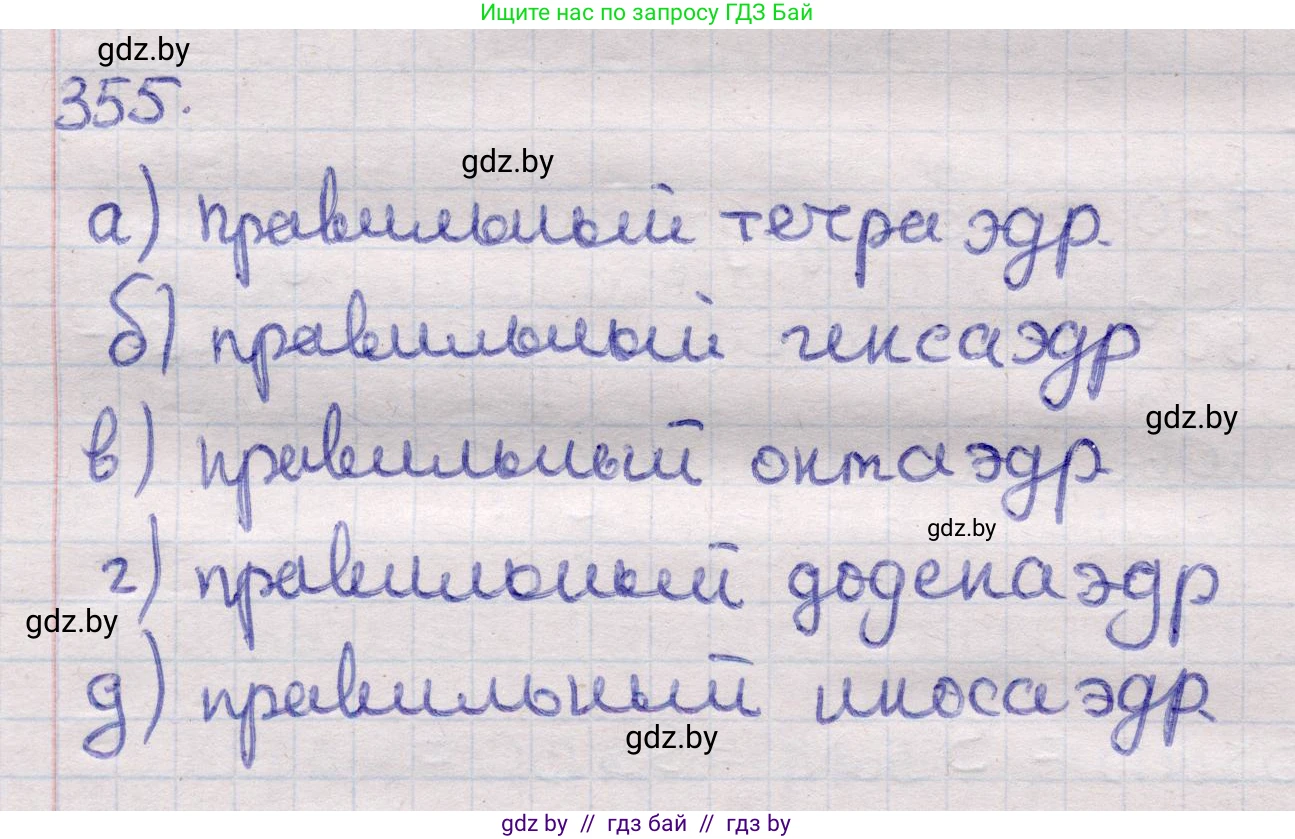 Ищите нас по запросу ГДЗ Бай
gdz.by
355.
gdz.by
а) правильный тетраэдр.
б) правильный гексаэдр
gdz.by
в) правильный октаэдр
gdz.by
г) правильный додекаэдр
gdz.by
д) правильный икосаэдр.
gdz.by
gdz by // гдз бай // гдз by